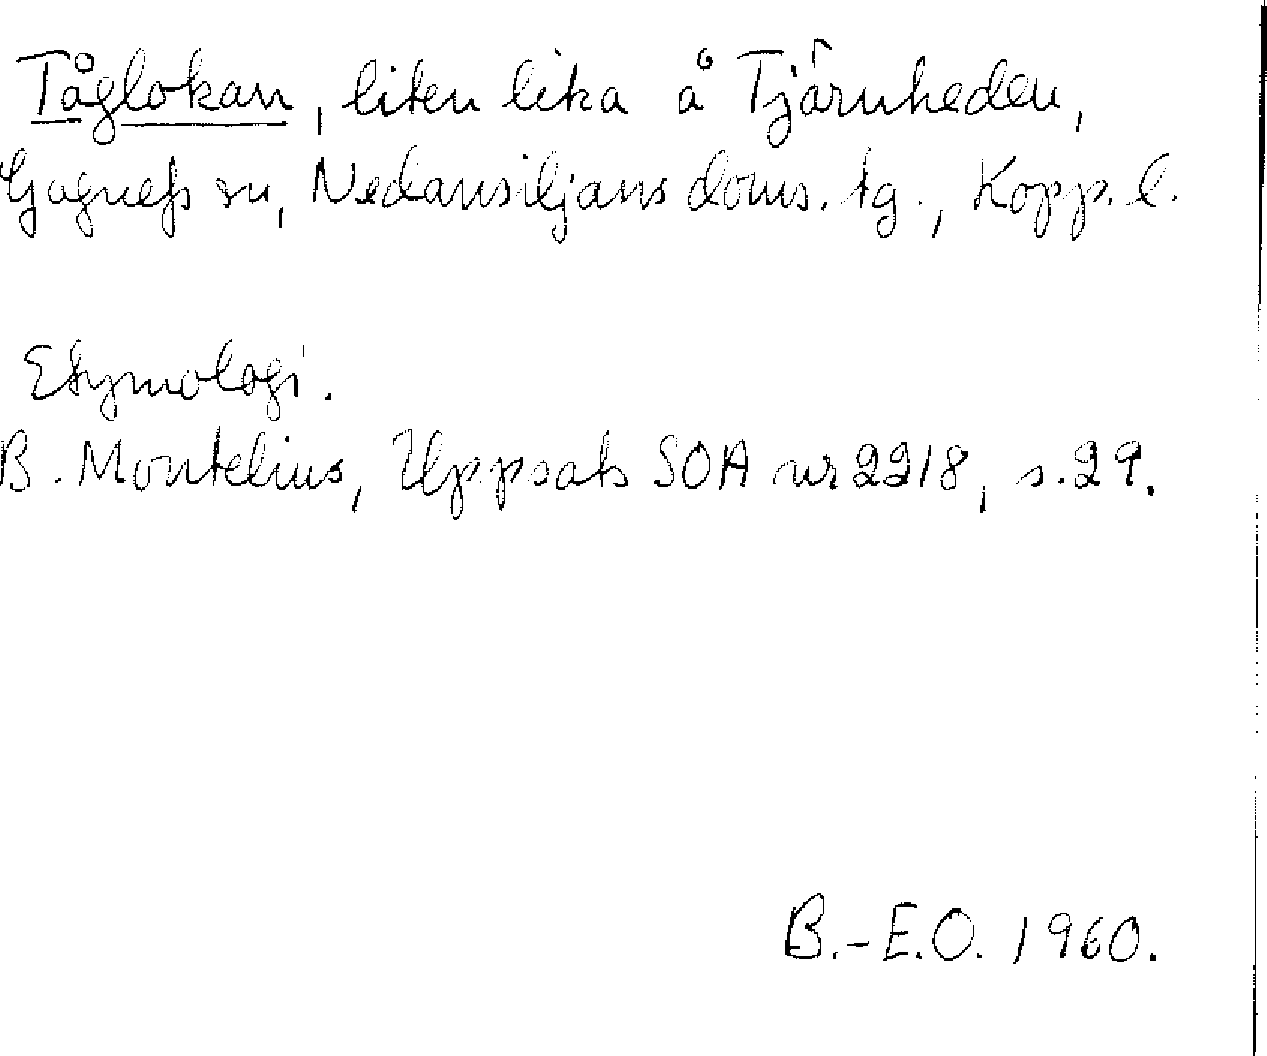 Tåglokan, liten leka å Tjärnheden,
Gagnefs sn, Nedansiljans doms. tg., Kopp. l.
Etymologi.
B. Montelius, Uppsats SOA nr 2218, s. 29.
B.-E.O. 1960.